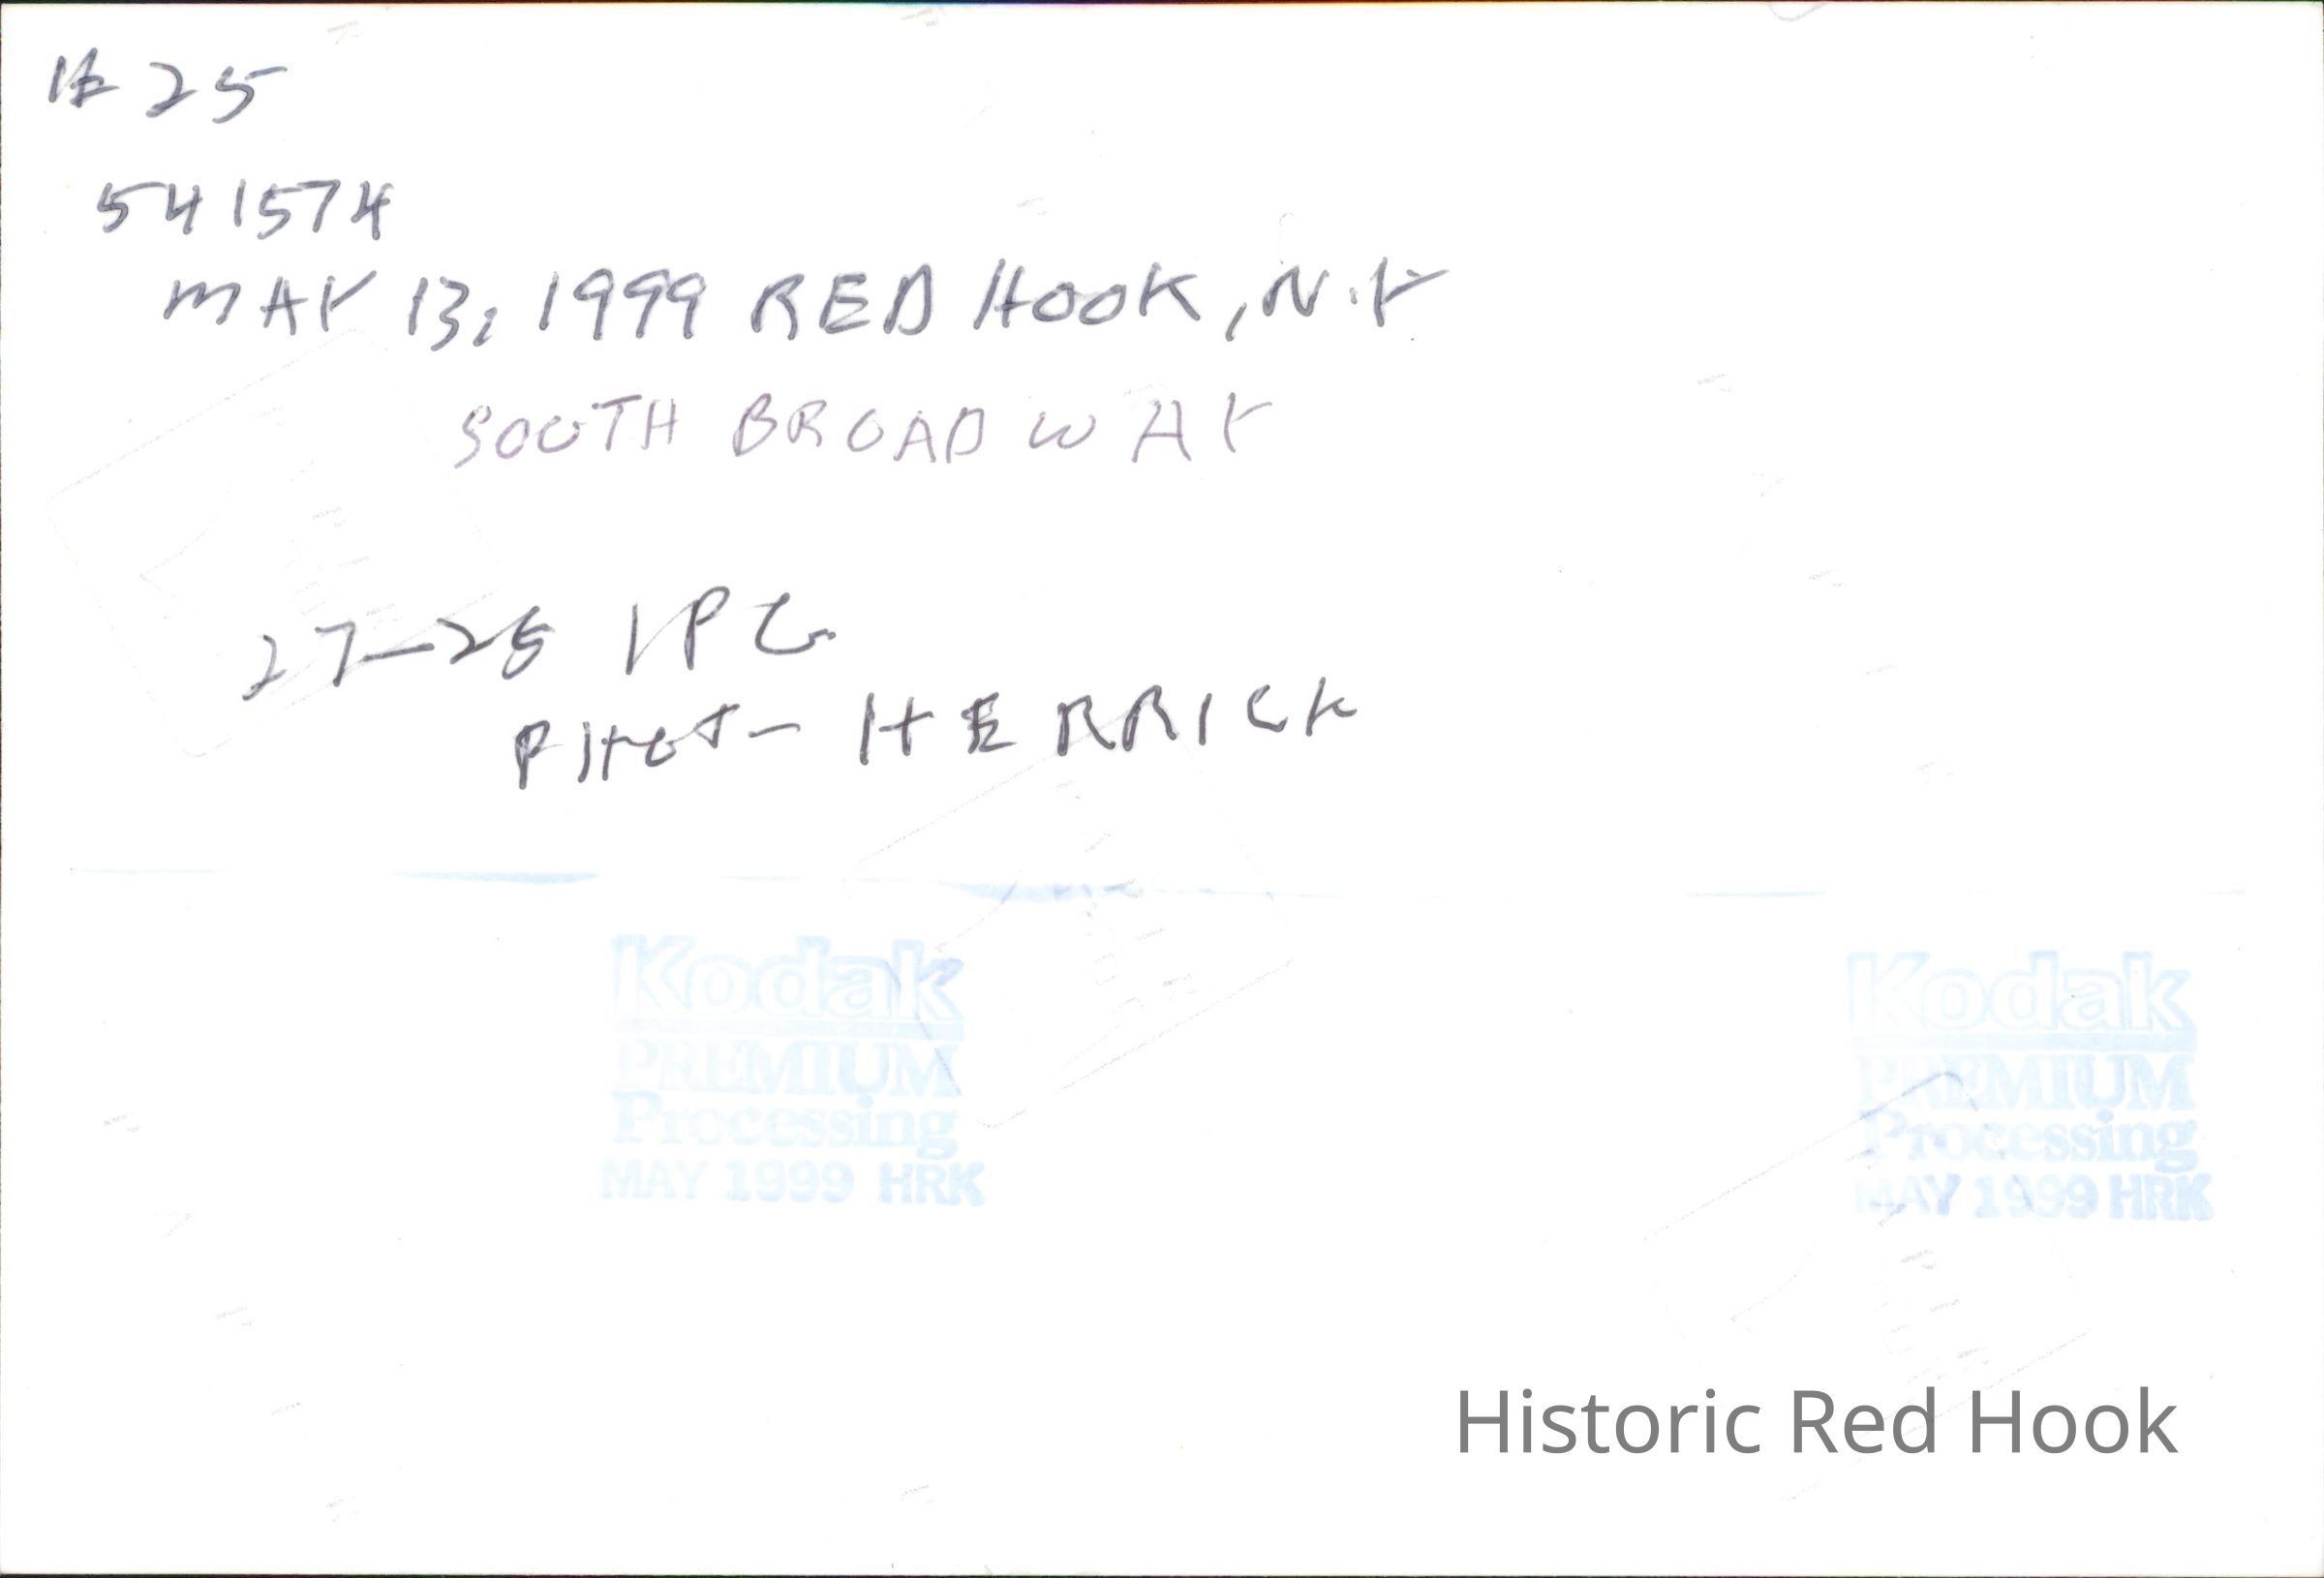 # 25
541574
MAY 13, 1999 RED HOOK, N.Y
SOUTH BROADWAY
27-25 VPC
PHOT- HERRICK
Kodak
PREMIUM
Processing
MAY 1999 HRK
Kodak
PREMIUM
Processing
MAY 1999 HRK
Historic Red Hook